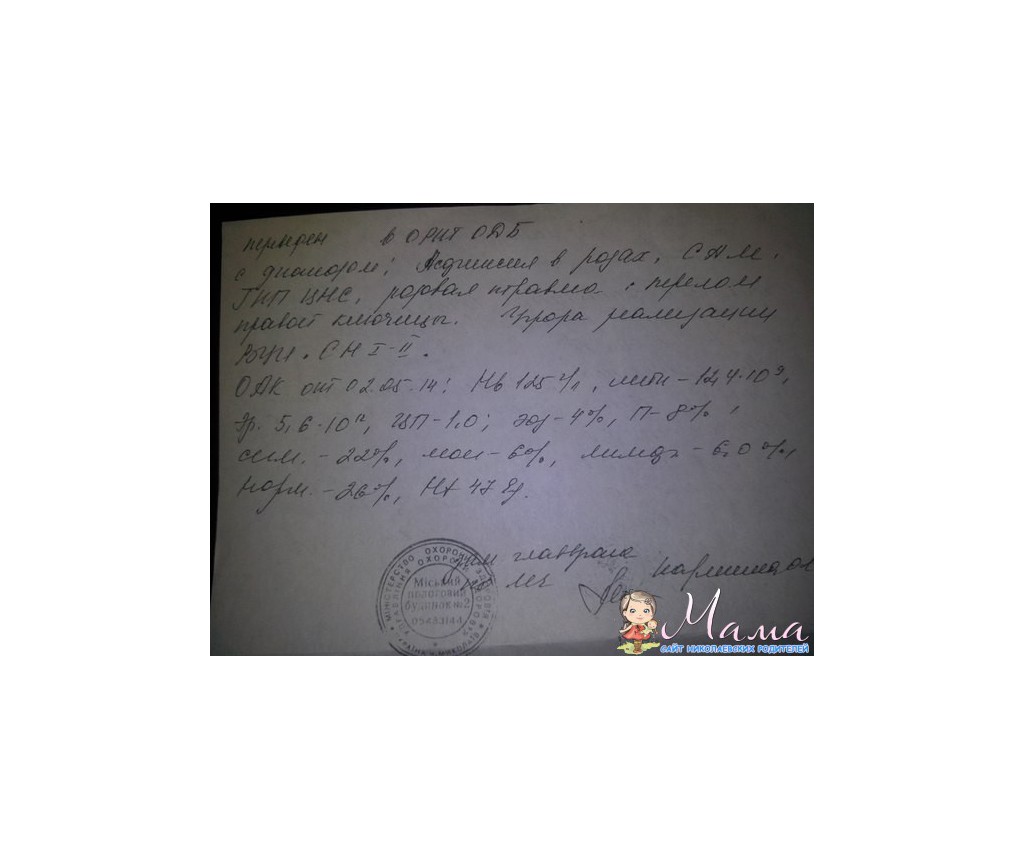 переведен в ОРИТ ОДБ
с диагнозом: Асфиксия в родах, САМ,
ГИП ЦНС, родовая травма: перелом
правой ключицы. Угроза реализации
СН I-II.
ОАК от 02.05.14: Нв 125 г/л, лейк - 12,4·10⁹,
Эр. 5,6·10¹², ЦП-1,0; эоз-4%, П-8%,
сегм. - 22%, мон-6%, лимф - 60%,
норм. - 26%, Ht 47
главврача
по леч
МІНІСТЕРСТВО ОХОРОНИ ЗДОРОВ'Я
УПРАВЛІННЯ ОХОРОНИ ЗДОРОВ'Я
Міський
пологовий
будинок №2
05483144
Мама
САЙТ НИКОЛАЕВСКИХ РОДИТЕЛЕЙ